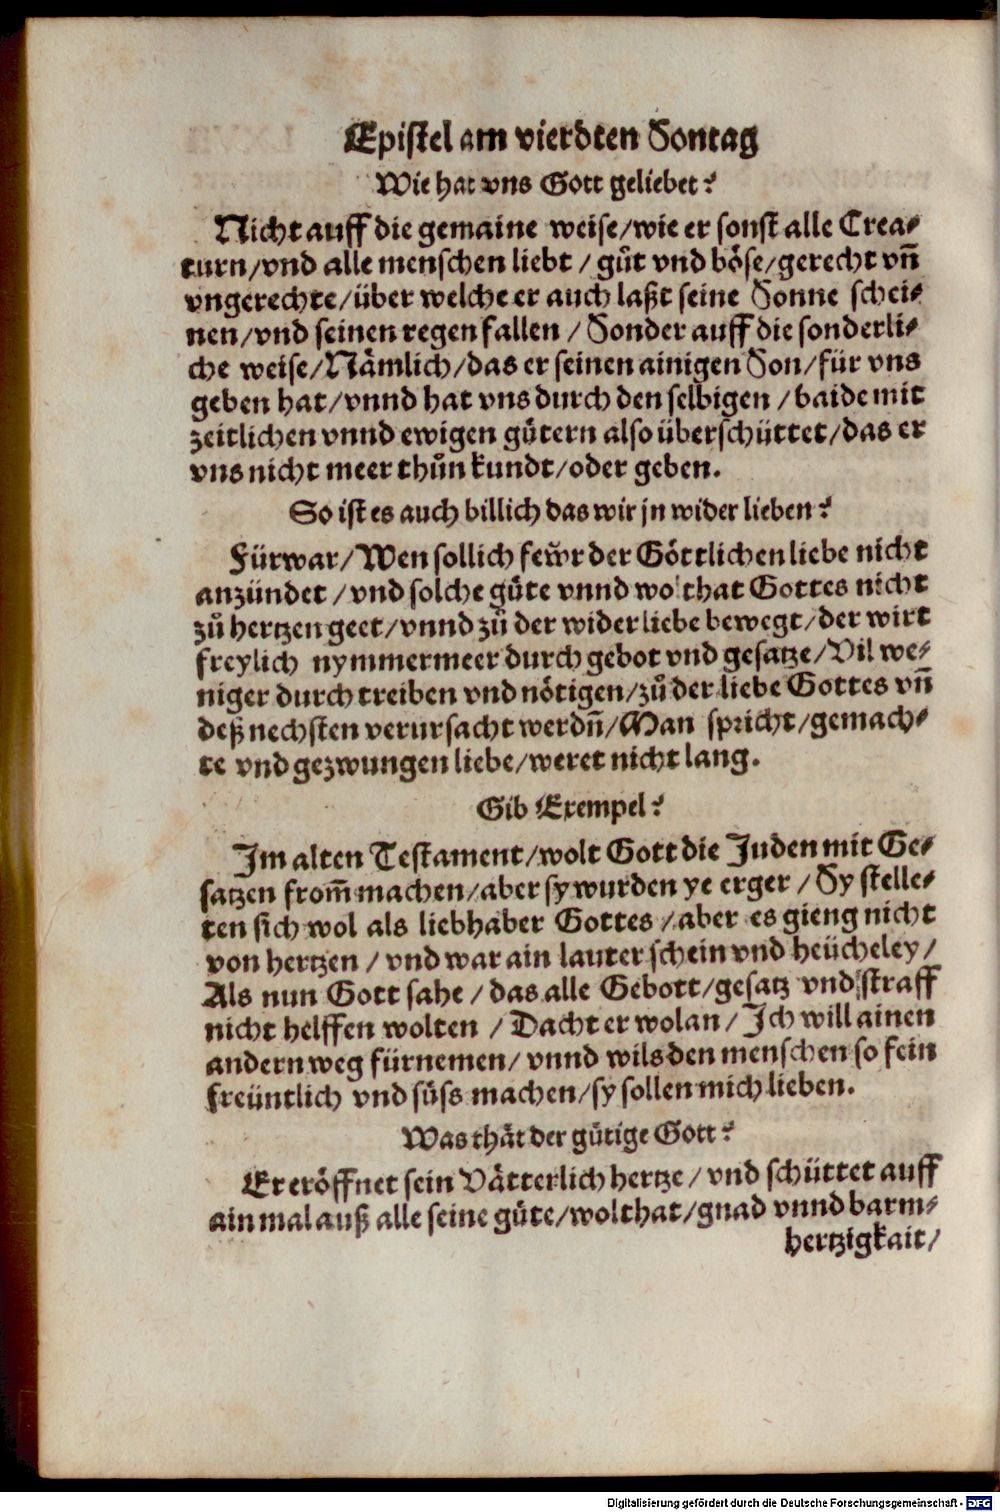 Epistel am vierdten Sontag
Wie hat vns Gott geliebet?
Nicht auff die gemaine weise/wie er sonst alle Crea⸗
turn/vnd alle menschen liebt / gůt vnd böse/gerecht vn̄
vngerechte/über welche er auch laßt seine Sonne schei⸗
nen/vnd seinen regen fallen / Sonder auff die sonderli⸗
che weise/Nämlich/das er seinen ainigen Son/für vns
geben hat/vnnd hat vns durch den selbigen /baide mit
zeitlichen vnnd ewigen gůtern also überschüttet/das er
vns nicht meer thůn kundt/oder geben.
So ist es auch billich das wir jn wider lieben?
Fürwar/Wen sollich feẅr der Göttlichen liebe nicht
anzündet /vnd solche güte vnnd wolthat Gottes nicht
zů hertzen geet/vnnd zů der widerliebe bewegt/der wirt
freylich nymmermeer durch gebot vnd gesatze/Vil we⸗
niger durch treiben vnd nötigen/zů der liebe Gottes vn̄
deß nechsten verursacht werdn̄/Man spricht/gemach⸗
te vnd gezwungen liebe/weret nicht lang.
Gib Exempel?
Im alten Testament/wolt Gott die Juden mit Ge⸗
satzen from̄ machen/aber sy wurden ye erger /Sy stelle⸗
ten sich wol als liebhaber Gottes /aber es gieng nicht
von hertzen / vnd war ain lauter schein vnd heücheley/
Als nun Gott sahe / das alle Gebott/gesatz vnd straff
nicht helffen wolten / Dacht er wolan / Ich will ainen
andern weg fürnemen/ vnnd wils den menschen so fein
freüntlich vnd süss machen/sy sollen mich lieben.
Was thät der gütige Gott?
Er eröffnet sein Vätterlich hertze / vnd schüttet auff
ain mal auß alle seine güte/wolthat/gnad vnnd barm⸗
hertzigkait/
Digitalisierung gefördert durch die Deutsche Forschungsgemeinschaft - DFG